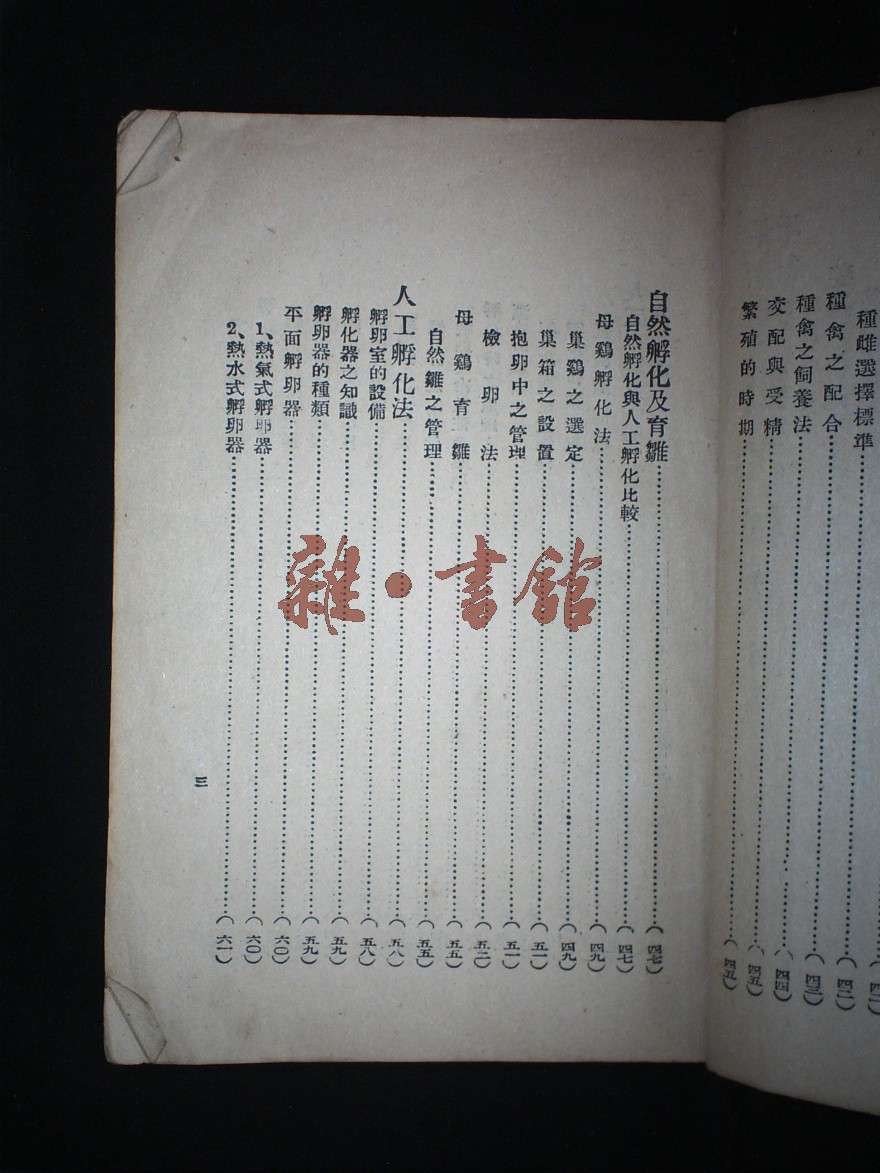 種雌選擇標準
種禽之配合(四二)
種禽之飼養法(四三)
交配與受精(四四)
繁殖的時期(四五)
(四五)
自然孵化及育雛(四七)
自然孵化與人工孵化比較(四七)
母鷄孵化法(四九)
巢鷄之選定(四九)
巢箱之設置(五一)
抱卵中之管理(五一)
檢卵法(五二)
母鷄育雛(五五)
自然雛之管理(五五)
人工孵化法(五八)
孵卵室的設備(五八)
孵化器之知識(五九)
孵卵器的種類(五九)
平面孵卵器(六〇)
1、熱氣式孵卵器(六〇)
2、熱水式孵卵器(六一)
三
雜·書館